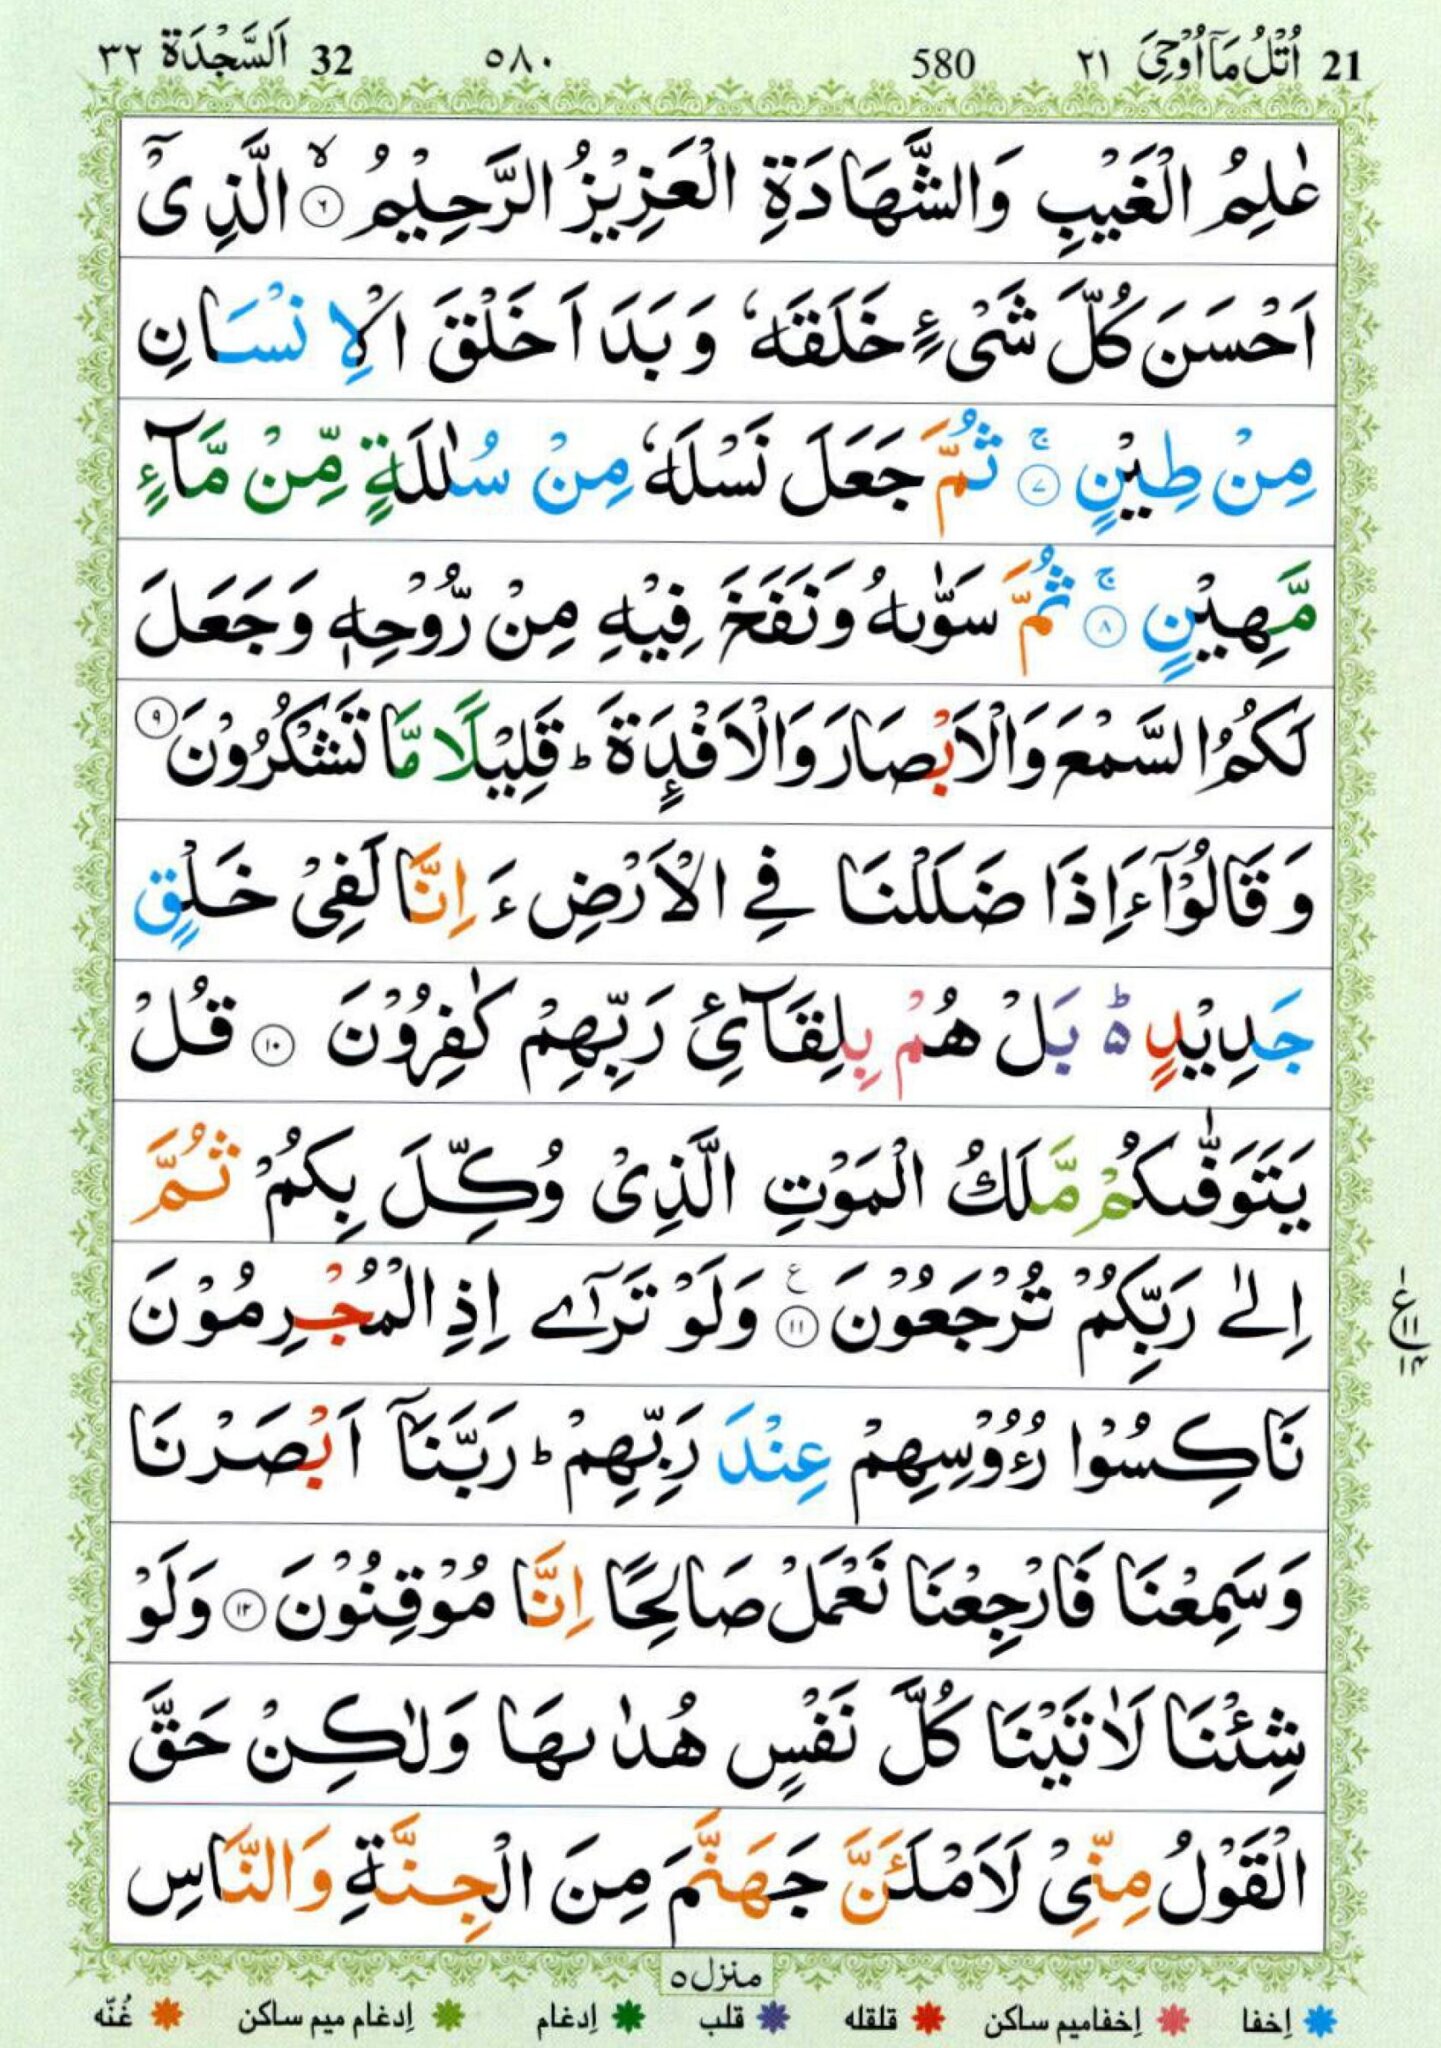 21 اُتْلُ مَآ اُوْحِیَ ٢١ 580 ٥٨٠ 32 اَلسَّجْدَة ٣٢
عٰلِمُ الْغَيْبِ وَالشَّهَادَةِ الْعَزِيْزُ الرَّحِيْمُ ۙ﴿٦﴾ الَّذِیْۤ
اَحْسَنَ كُلَّ شَیْءٍ خَلَقَهٗ وَ بَدَاَ خَلْقَ الْاِنْسَانِ
مِنْ طِيْنٍ ۚ﴿٧﴾ ثُمَّ جَعَلَ نَسْلَهٗ مِنْ سُلٰلَةٍ مِّنْ مَّآءٍ
مَّهِيْنٍ ۚ﴿٨﴾ ثُمَّ سَوّٰىهُ وَنَفَخَ فِيْهِ مِنْ رُّوْحِهٖ وَجَعَلَ
لَكُمُ السَّمْعَ وَالْاَبْصَارَ وَالْاَفْـِٕدَةَ ؕ قَلِيْلًا مَّا تَشْكُرُوْنَ ﴿٩﴾
وَ قَالُوْۤا ءَاِذَا ضَلَلْنَا فِی الْاَرْضِ ءَاِنَّا لَفِیْ خَلْقٍ
جَدِيْدٍ ؕ۬ بَلْ هُمْ بِلِقَآئِ رَبِّهِمْ كٰفِرُوْنَ ﴿١٠﴾ قُلْ
يَتَوَفّٰىكُمْ مَّلَكُ الْمَوْتِ الَّذِیْ وُكِّلَ بِكُمْ ثُمَّ
اِلٰى رَبِّكُمْ تُرْجَعُوْنَ ﴿١١﴾ ع وَلَوْ تَرٰۤى اِذِ الْمُجْرِمُوْنَ
ع ١ ١١ ١٤
نَاكِسُوْا رُءُوْسِهِمْ عِنْدَ رَبِّهِمْ ؕ رَبَّنَاۤ اَبْصَرْنَا
وَسَمِعْنَا فَارْجِعْنَا نَعْمَلْ صَالِحًا اِنَّا مُوْقِنُوْنَ ﴿١٢﴾ وَلَوْ
شِئْنَا لَاٰتَيْنَا كُلَّ نَفْسٍ هُدٰىهَا وَلٰكِنْ حَقَّ
الْقَوْلُ مِنِّیْ لَاَمْلَـَٔنَّ جَهَنَّمَ مِنَ الْجِنَّةِ وَالنَّاسِ
منزل ٥
اِخفا اِخفامیم ساکن قلقله قلب اِدغام اِدغام میم ساکن غُنّه